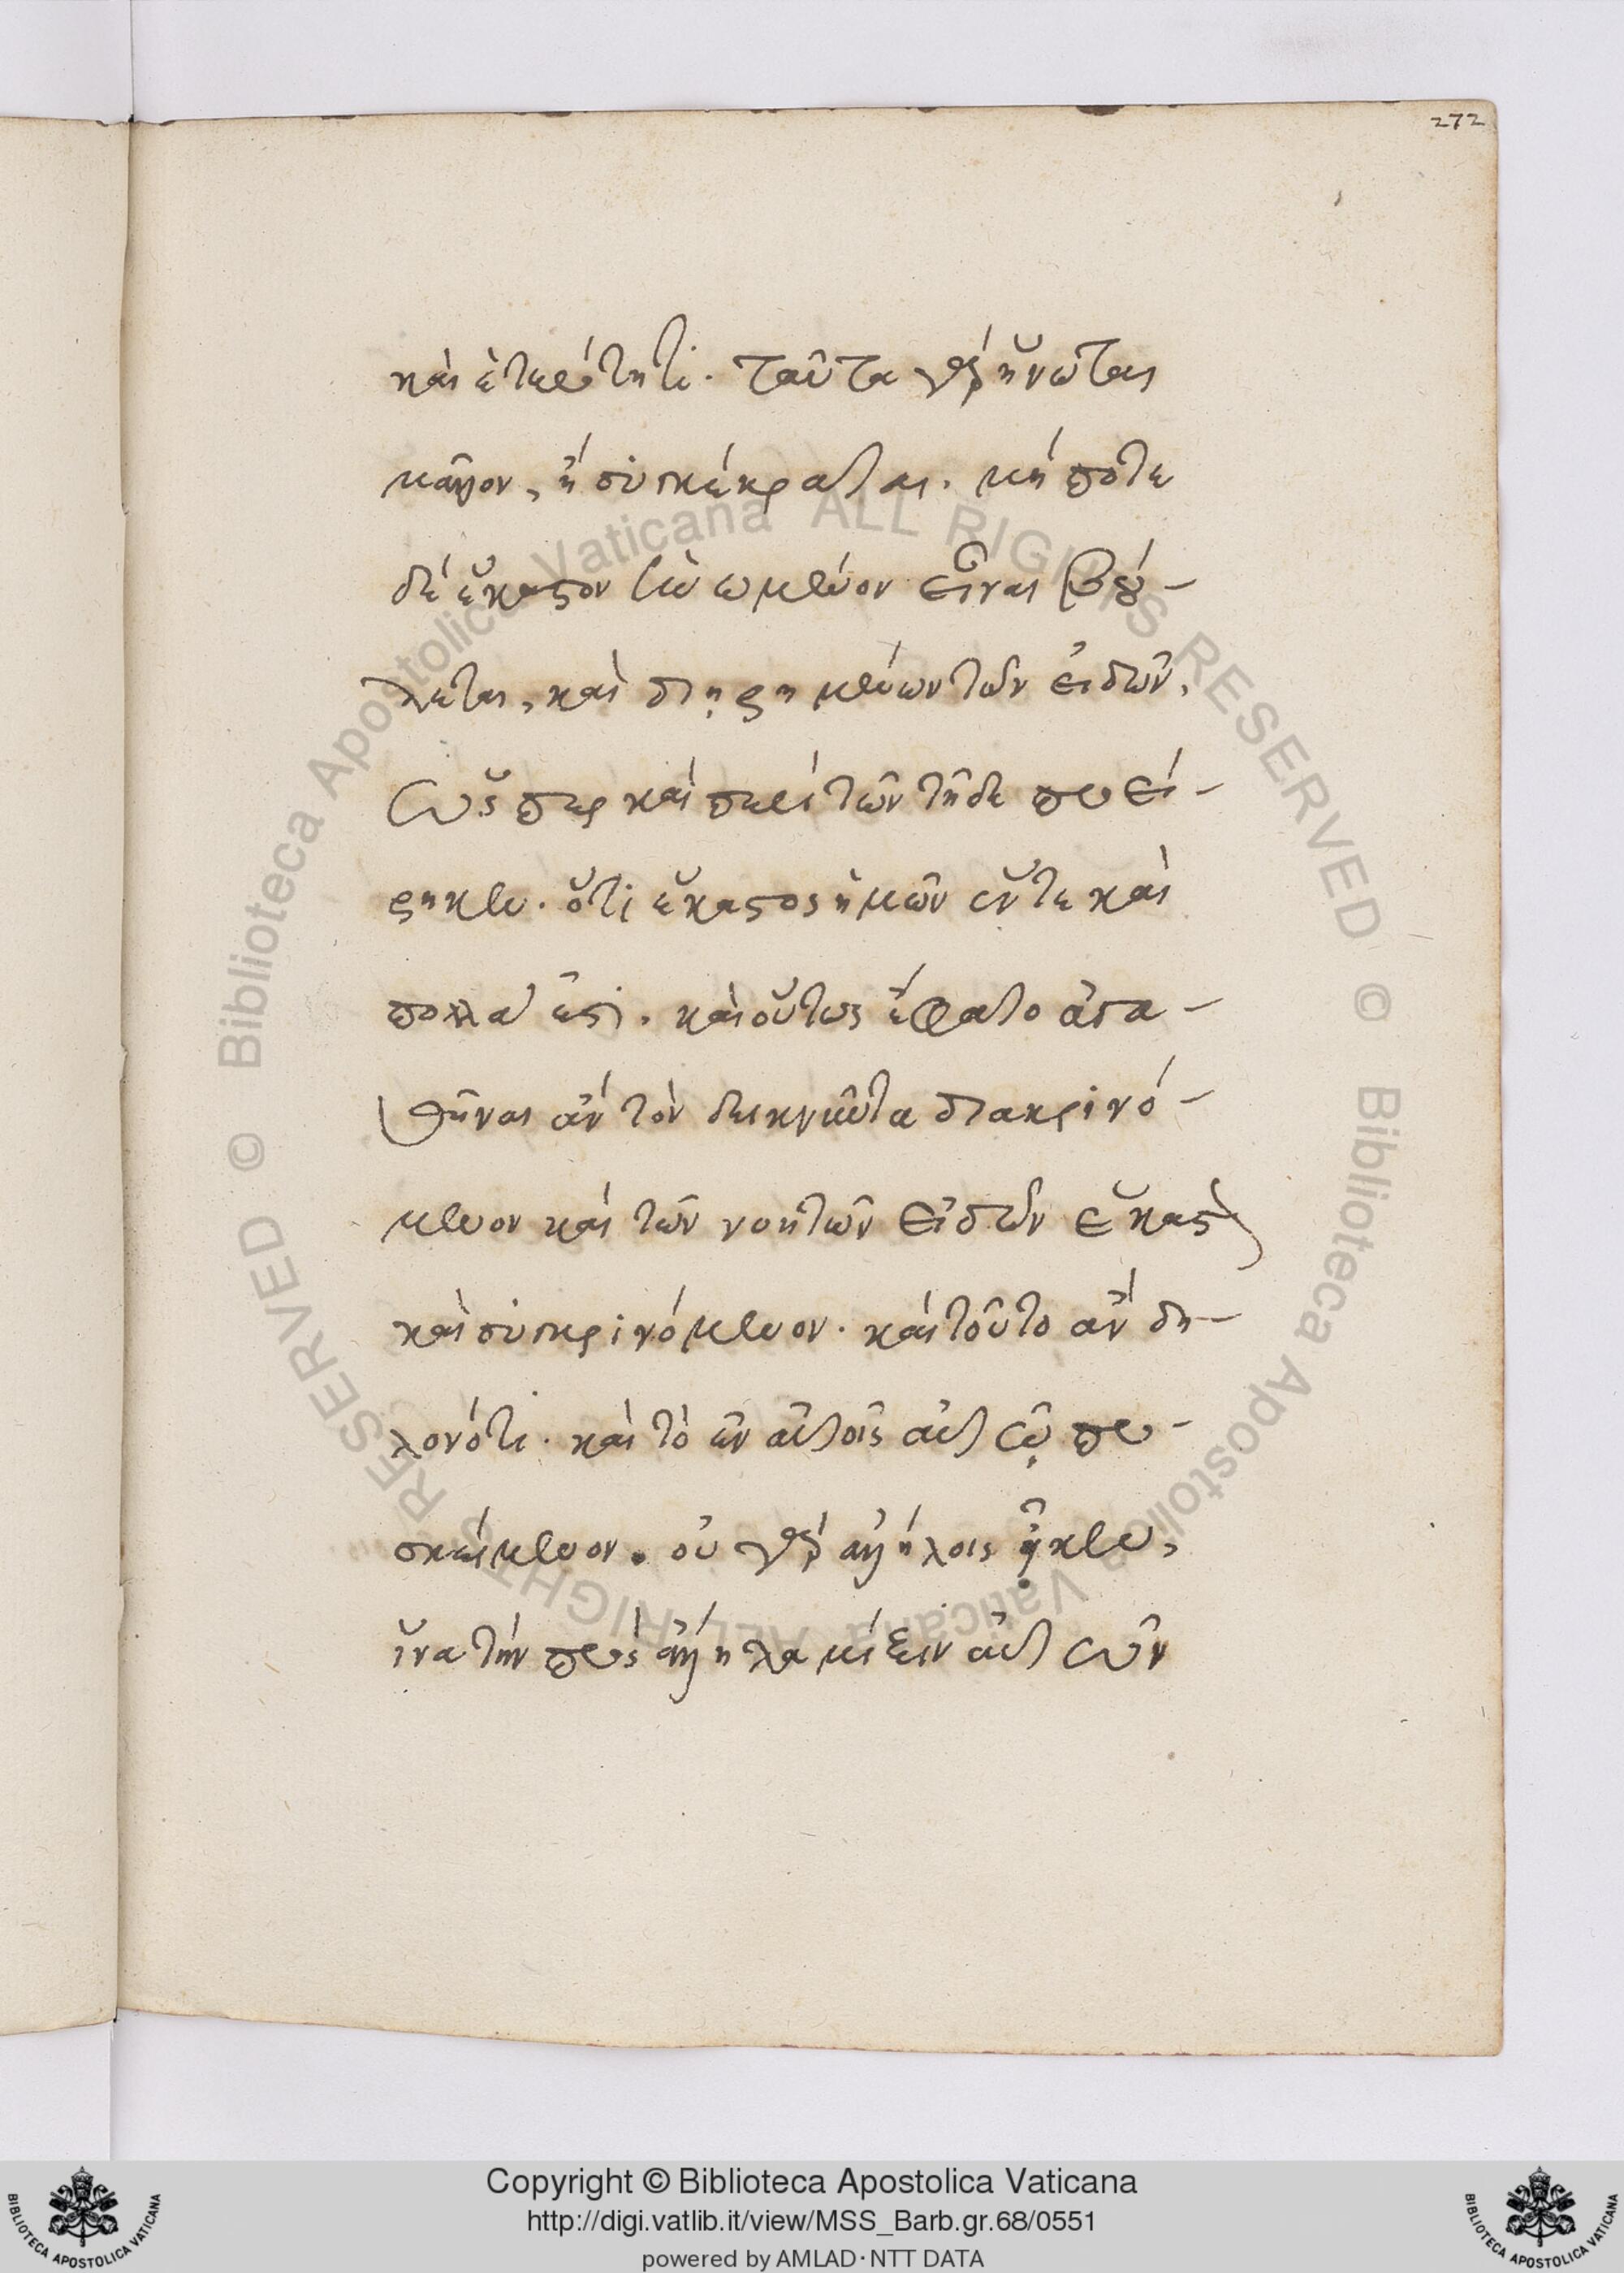 272
καὶ ἑτερότητι. ταῦτα γὰρ ἥνωται
μᾶλλον, ἢ συγκέκραται. μή ποτε
δὲ ἕκαστον ἡνωμένον εἶναι βού-
λεται, καὶ διῃρημένων τῶν εἰδῶν,
ὥσπερ καὶ περὶ τῶν τῇδε προεί-
ρηκεν. ὅτι ἕκαστος ἡμῶν ἕν τε καὶ
πολλά ἐστι. καὶ οὕτως ἔφατο ἀγα-
σθῆναι ἂν τὸν δεικνῦντα διακρινό-
μενον καὶ τῶν νοητῶν εἰδῶν ἕκαστον
καὶ συγκρινόμενον. καὶ τοῦτο ἂν δη-
λονότι. καὶ τὸ ἓν αὐτοῖς αὐτῷ προ-
σκείμενον. οὐ γὰρ ἀλλήλοις ᾔκεν,
ἵνα τὴν πρὸς ἄλληλα μίξιν αὐτῶν
Copyright © Biblioteca Apostolica Vaticana
http://digi.vatlib.it/view/MSS_Barb.gr.68/0551
powered by AMLAD·NTT DATA
BIBLIOTECA APOSTOLICA VATICANA
BIBLIOTECA APOSTOLICA VATICANA
© Biblioteca Apostolica Vaticana ALL RIGHTS RESERVED © Biblioteca Apostolica Vaticana ALL RIGHTS RESERVED